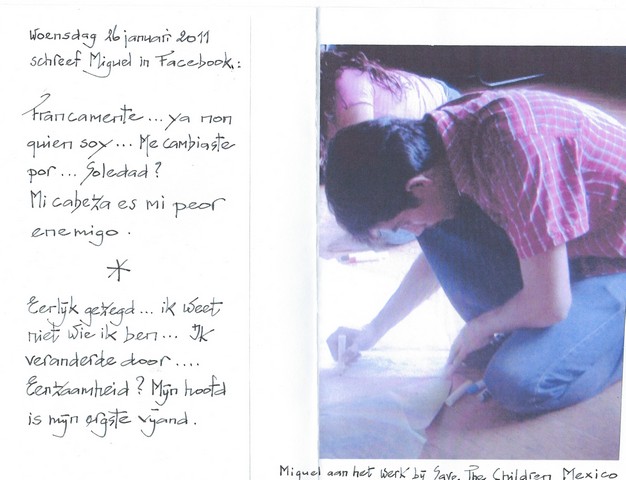 Woensdag 26 januari 2011
schreef Miguel in Facebook:
Francamente... ya non
quien soy... Me cambiaste
por... Soledad?
Mi cabeza es mi peor
enemigo.
*
Eerlijk gezegd... ik weet
niet wie ik ben... Ik
veranderde door....
Eenzaamheid? Mijn hoofd
is mijn ergste vijand.
Miguel aan het werk bij Save. The Children Mexico